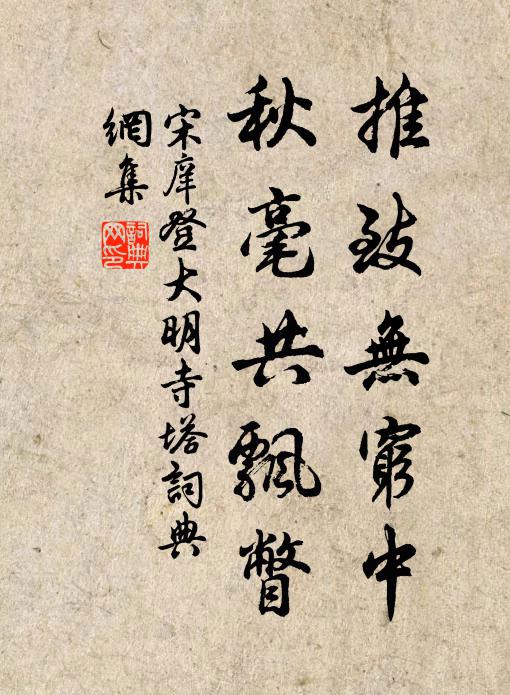 推致無窮中
秋毫共飄瞥
宋庠登大明寺塔詞典
網集
詞典網印